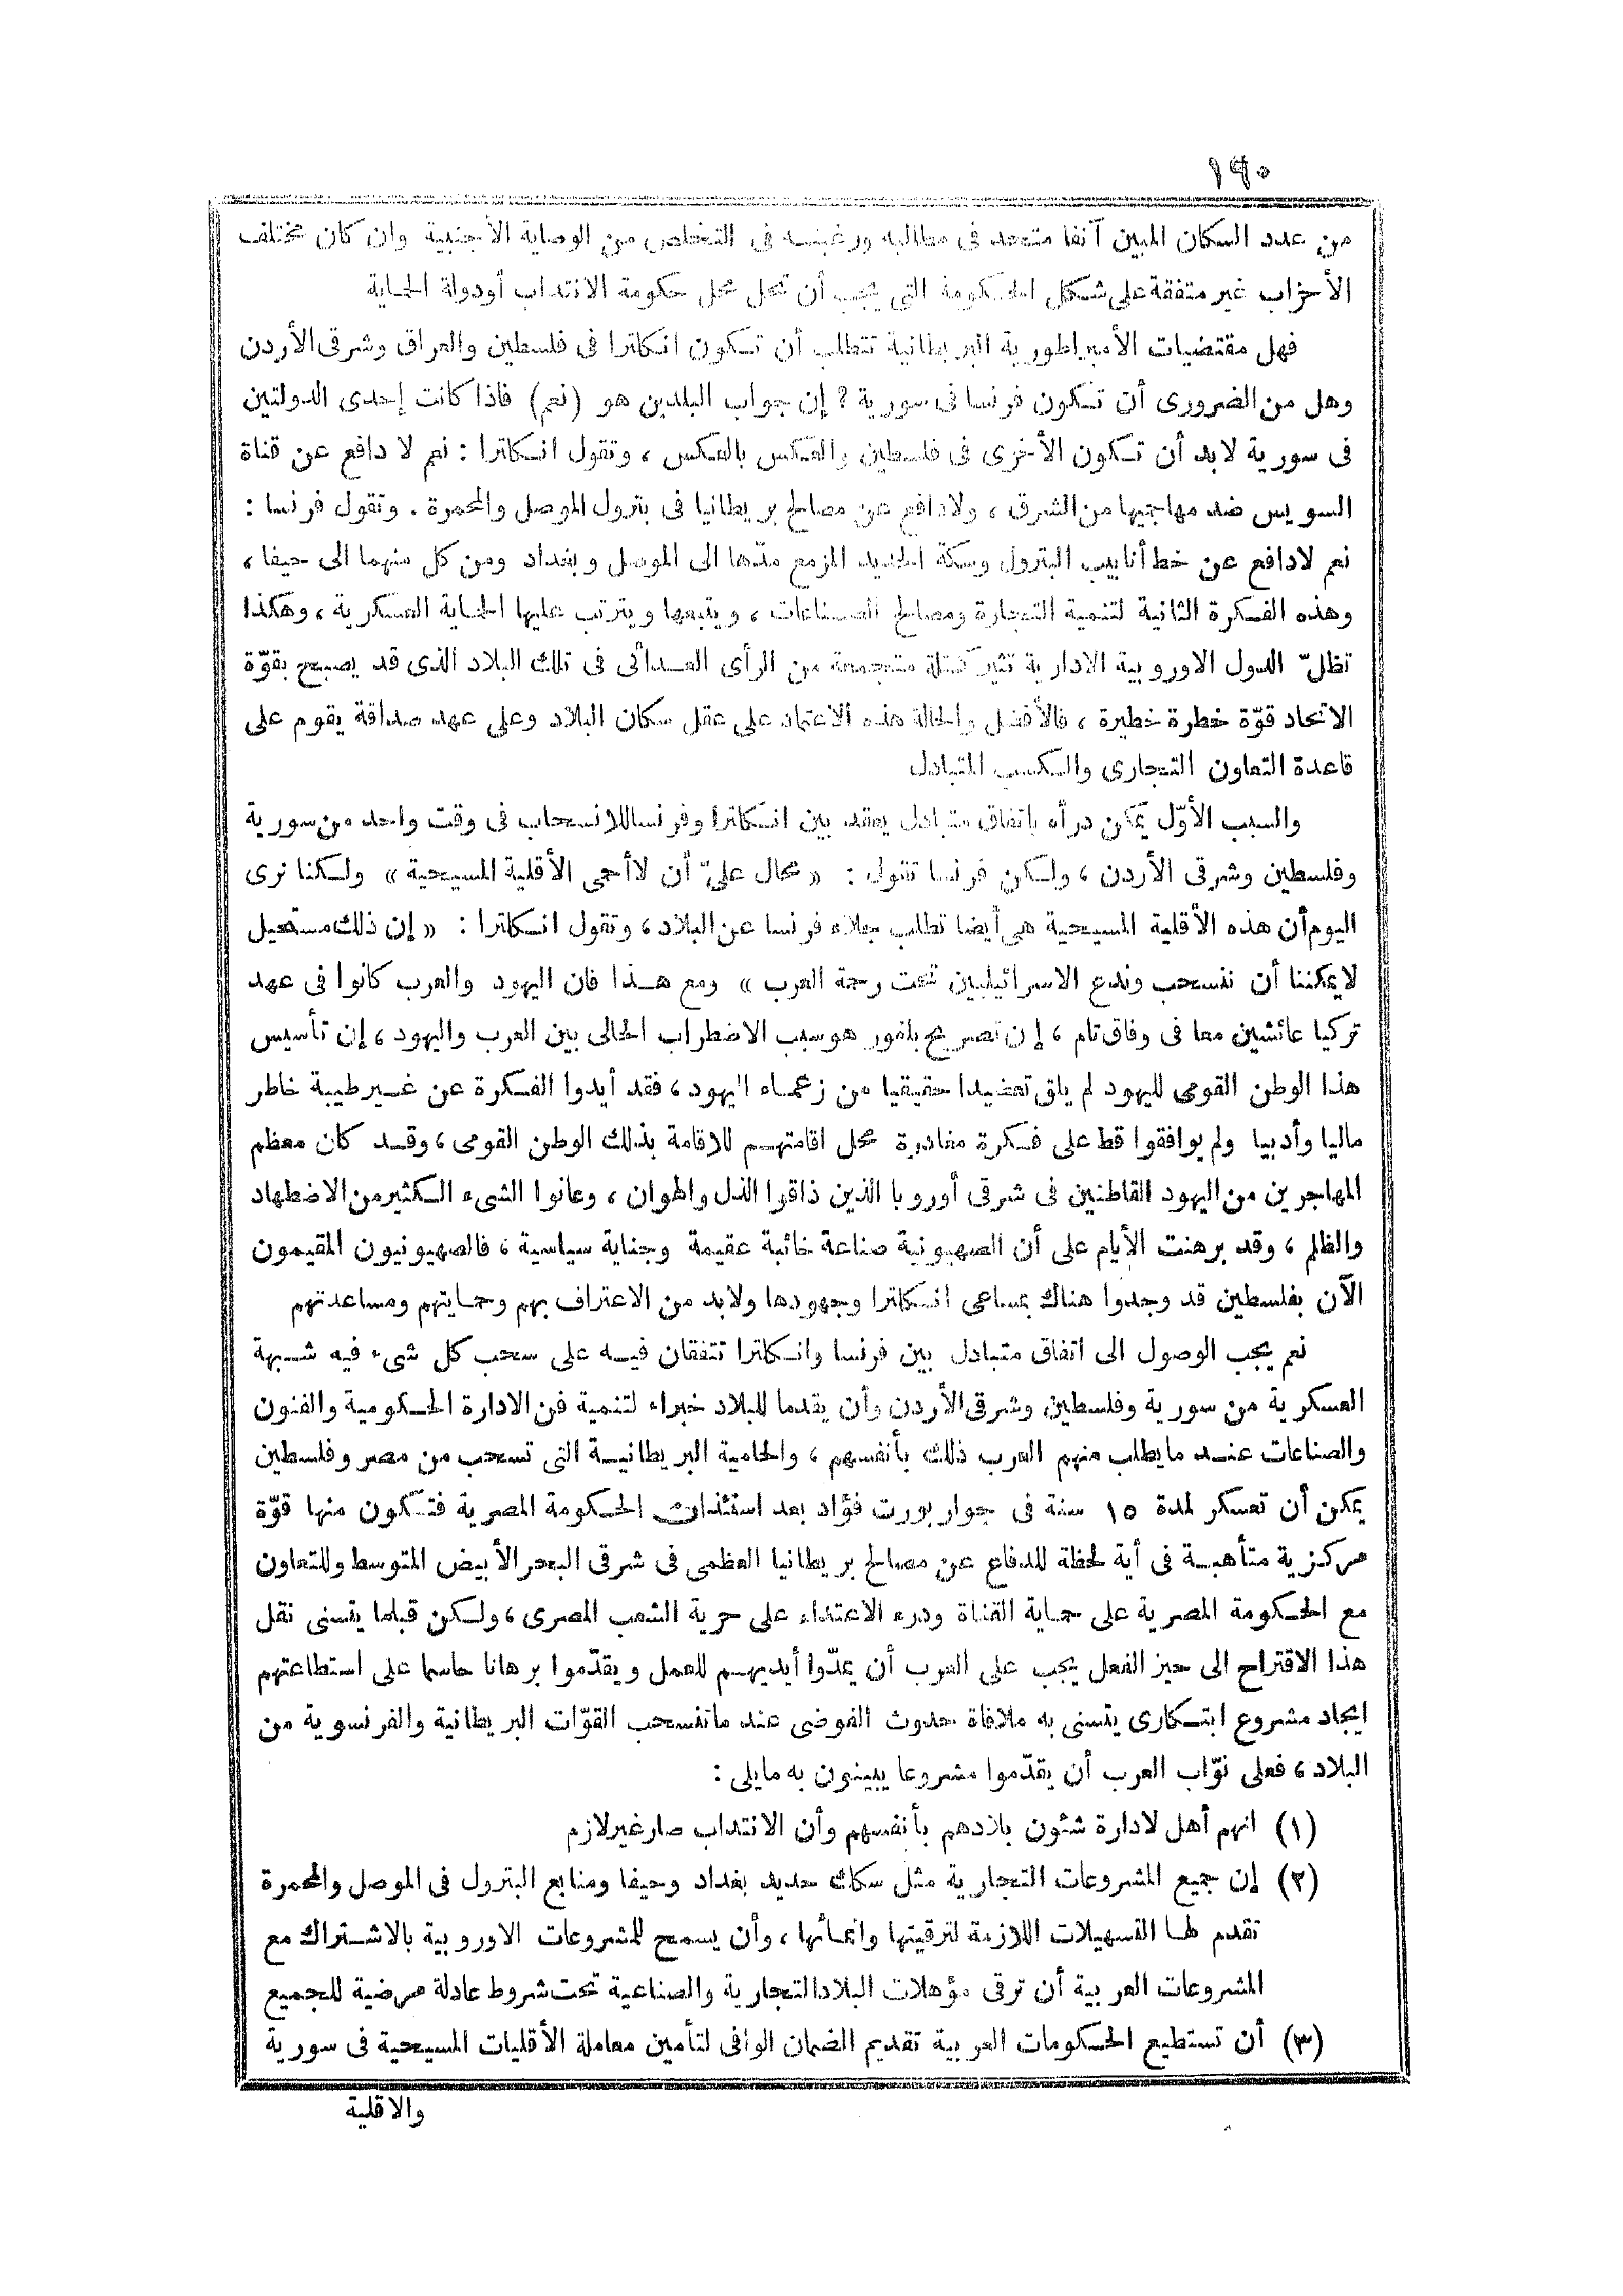 ١٩٠
من عدد السكان المبين آنفا متحد فى مطالبه ورغبته فى التخلص من الوصاية الأجنبية وان كان مختلف
الأحزاب غير متفقة على شكل الحكومة التى يجب أن تحل محل حكومة الانتداب أودولة الحماية
فهل مقتضيات الأمبراطورية البريطانية تتطلب أن تكون انكلترا فى فلسطين والعراق وشرقى الأردن
وهل من الضرورى أن تكون فرنسا فى سورية ؟ إن جواب البلدين هو (نعم) فاذا كانت إحدى الدولتين
فى سورية لابد أن تكون الأخرى فى فلسطين والعكس بالعكس ، وتقول انكلترا : نعم لا دافع عن قناة
السويس ضد مهاجميها من الشرق ، ولادافع عن مصالح بريطانيا فى بترول الموصل والمحمرة . وتقول فرنسا :
نعم لادافع عن خط أنابيب البترول وسكة الحديد المزمع مدّها الى الموصل وبغداد ومن كل منهما الى حيفا ،
وهذه الفكرة الثانية لتنمية التجارة ومصالح الصناعات ، ويتبعها ويترتب عليها الحماية العسكرية ، وهكذا
تظلّ الدول الاوروبية الادارية تثير كتلة متجمعة من الرأى العدائى فى تلك البلاد الذى قد يصبح بقوّة
الاتحاد قوّة خطرة خطيرة ، فالأفضل والحالة هذه الاعتماد على عقل سكان البلاد وعلى عهد صداقة يقوم على
قاعدة التعاون التجارى والكسب المتبادل
والسبب الأوّل يمكن درأه باتفاق متبادل يعقد بين انكلترا وفرنسا للانسحاب فى وقت واحد من سورية
وفلسطين وشرقى الأردن ، ولكن فرنسا تقول : « محال علىّ أن لاأحمى الأقلية المسيحية » ولكنا نرى
اليوم أن هذه الأقلية المسيحية هى أيضا تطلب جلاء فرنسا عن البلاد ، وتقول انكلترا : « إن ذلك مستحيل
لايمكننا أن ننسحب وندع الاسرائيليين تحت رحمة العرب » ومع هذا فان اليهود والعرب كانوا فى عهد
تركيا عائشين معا فى وفاق تام ، إن تصريح بلفور هو سبب الاضطراب الحالى بين العرب واليهود ، إن تأسيس
هذا الوطن القومى لليهود لم يلق تعضيدا حقيقيا من زعماء اليهود ، فقد أيدوا الفكرة عن غير طيبة خاطر
ماليا وأدبيا ولم يوافقوا قط على فكرة مغادرة محل اقامتهم للاقامة بذلك الوطن القومى ، وقد كان معظم
المهاجرين من اليهود القاطنين فى شرقى أوروبا الذين ذاقوا الذل والهوان ، وعانوا الشىء الكثير من الاضطهاد
والظلم ، وقد برهنت الأيام على أن الصهيونية صناعة خائبة عقيمة وجناية سياسية ، فالصهيونيون المقيمون
الآن بفلسطين قد وجدوا هناك بمساعى انكلترا وجهودها ولابد من الاعتراف بهم وحمايتهم ومساعدتهم
نعم يجب الوصول الى اتفاق متبادل بين فرنسا وانكلترا تتفقان فيه على سحب كل شىء فيه شبهة
العسكرية من سورية وفلسطين وشرقى الأردن وأن يقدما للبلاد خبراء لتنمية فن الادارة الحكومية والفنون
والصناعات عند مايطلب منهم العرب ذلك بأنفسهم ، والحامية البريطانية التى تسحب من مصر وفلسطين
يمكن أن تعسكر لمدة ١٥ سنة فى جوار بورت فؤاد بعد استئذان الحكومة المصرية فتكون منها قوّة
مركزية متأهبة فى أية لحظة للدفاع عن مصالح بريطانيا العظمى فى شرقى البحر الأبيض المتوسط وللتعاون
مع الحكومة المصرية على حماية القناة ودرء الاعتداء على حرية الشعب المصرى ، ولكن قبلما يتسنى نقل
هذا الاقتراح الى حيز الفعل يجب على العرب أن يمدّوا أيديهم للعمل ويقدّموا برهانا حاسما على استطاعتهم
ايجاد مشروع ابتكارى يتسنى به ملافاة حدوث الفوضى عند ماتنسحب القوّات البريطانية والفرنسوية من
البلاد ، فعلى نوّاب العرب أن يقدّموا مشروعا يبينون به مايلى :
(١) انهم أهل لادارة شئون بلادهم بأنفسهم وأن الانتداب صار غير لازم
(٢) إن جميع المشروعات التجارية مثل سكك حديد بغداد وحيفا ومنابع البترول فى الموصل والمحمرة
تقدم لها التسهيلات اللازمة لترقيتها وانمائها ، وأن يسمح للمشروعات الاوروبية بالاشتراك مع
المشروعات العربية أن ترقى مؤهلات البلاد التجارية والصناعية تحت شروط عادلة مرضية للجميع
(٣) أن تستطيع الحكومات العربية تقديم الضمان الوافى لتأمين معاملة الأقليات المسيحية فى سورية
والاقلية